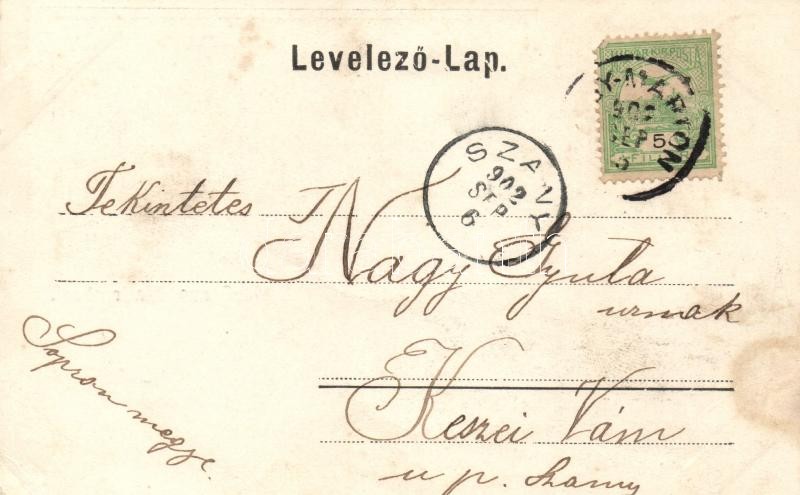 Levelező-Lap.
MAGYAR KIR. POSTA
Y-MÁRTON
902
SEP
5
5
FILLÉR
SZANY
902
SEP
6
Tekintetes
Nagy Gyula
urnak
Keszei Vám
u p. Szany
Sopron megye.